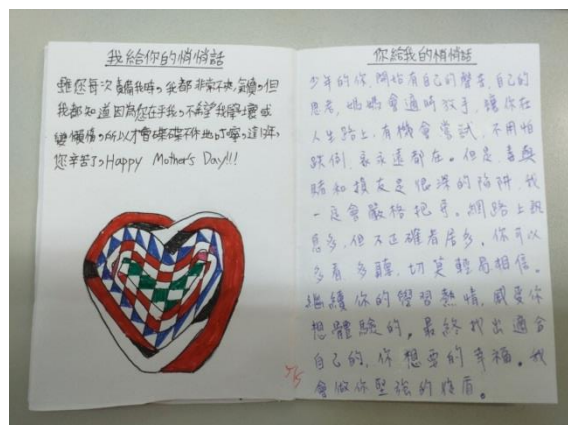 我給你的悄悄話
雖然每次責備我時，我都非常不爽、氣憤，但
我都知道因為您在乎我，不希望我學壞或
變懶惰，所以才會喋喋不休地叮嚀，這13年，
您辛苦了，Happy Mother's Day!!!
你給我的悄悄話
少年的你，開始有自己的聲音、自己的
思考，媽媽會適時放手，讓你在
人生路上，有機會嘗試，不用怕
跌倒，我永遠都在。但是，毒與
賭和損友是很深的陷阱，我
一定會嚴格把守。網路上訊
息多，但不正確者居多，你可以
多看多聽，切莫輕易相信。
繼續你的學習熱情，感受你
想體驗的，最終找出適合
自己的，你想要的幸福。我
會做你堅強的後盾。